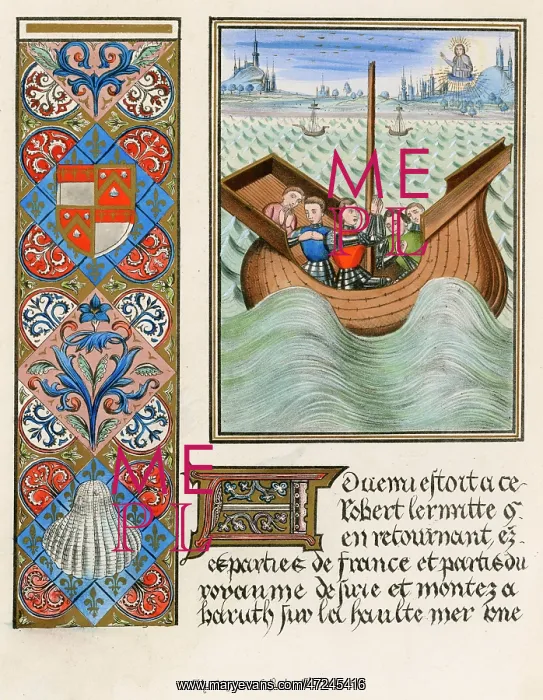 ME
PL
ME
PL
Advenu estoit a ce
Robert lermitte q̄
en retournant, ez
es parties de france et partis du
royaume de sirie et montez a
baruth sur la haulte mer vne
www.maryevans.com/47245416